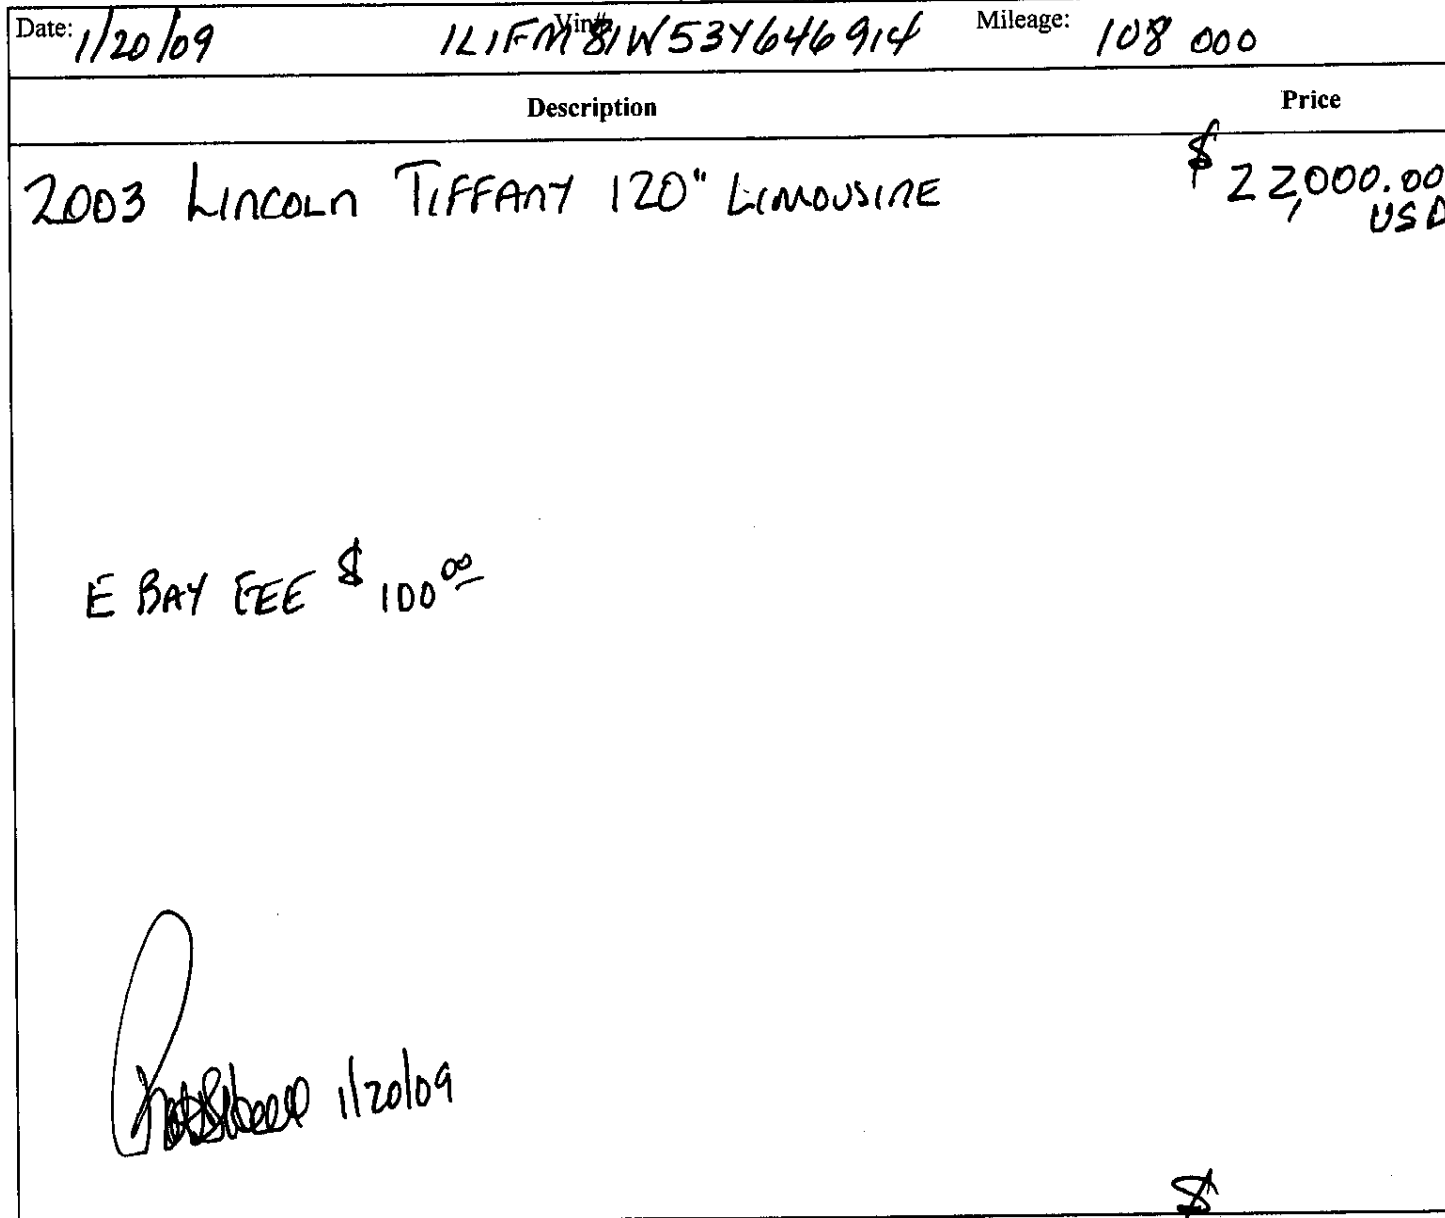 Date: 1/20/09 Vin#: 1L1FM81W53Y646914 Mileage: 108 000
Description Price
2003 LINCOLN TIFFANY 120" LIMOUSINE $ 22,000.00
USD
E BAY FEE $ 100 00
1/20/09
$